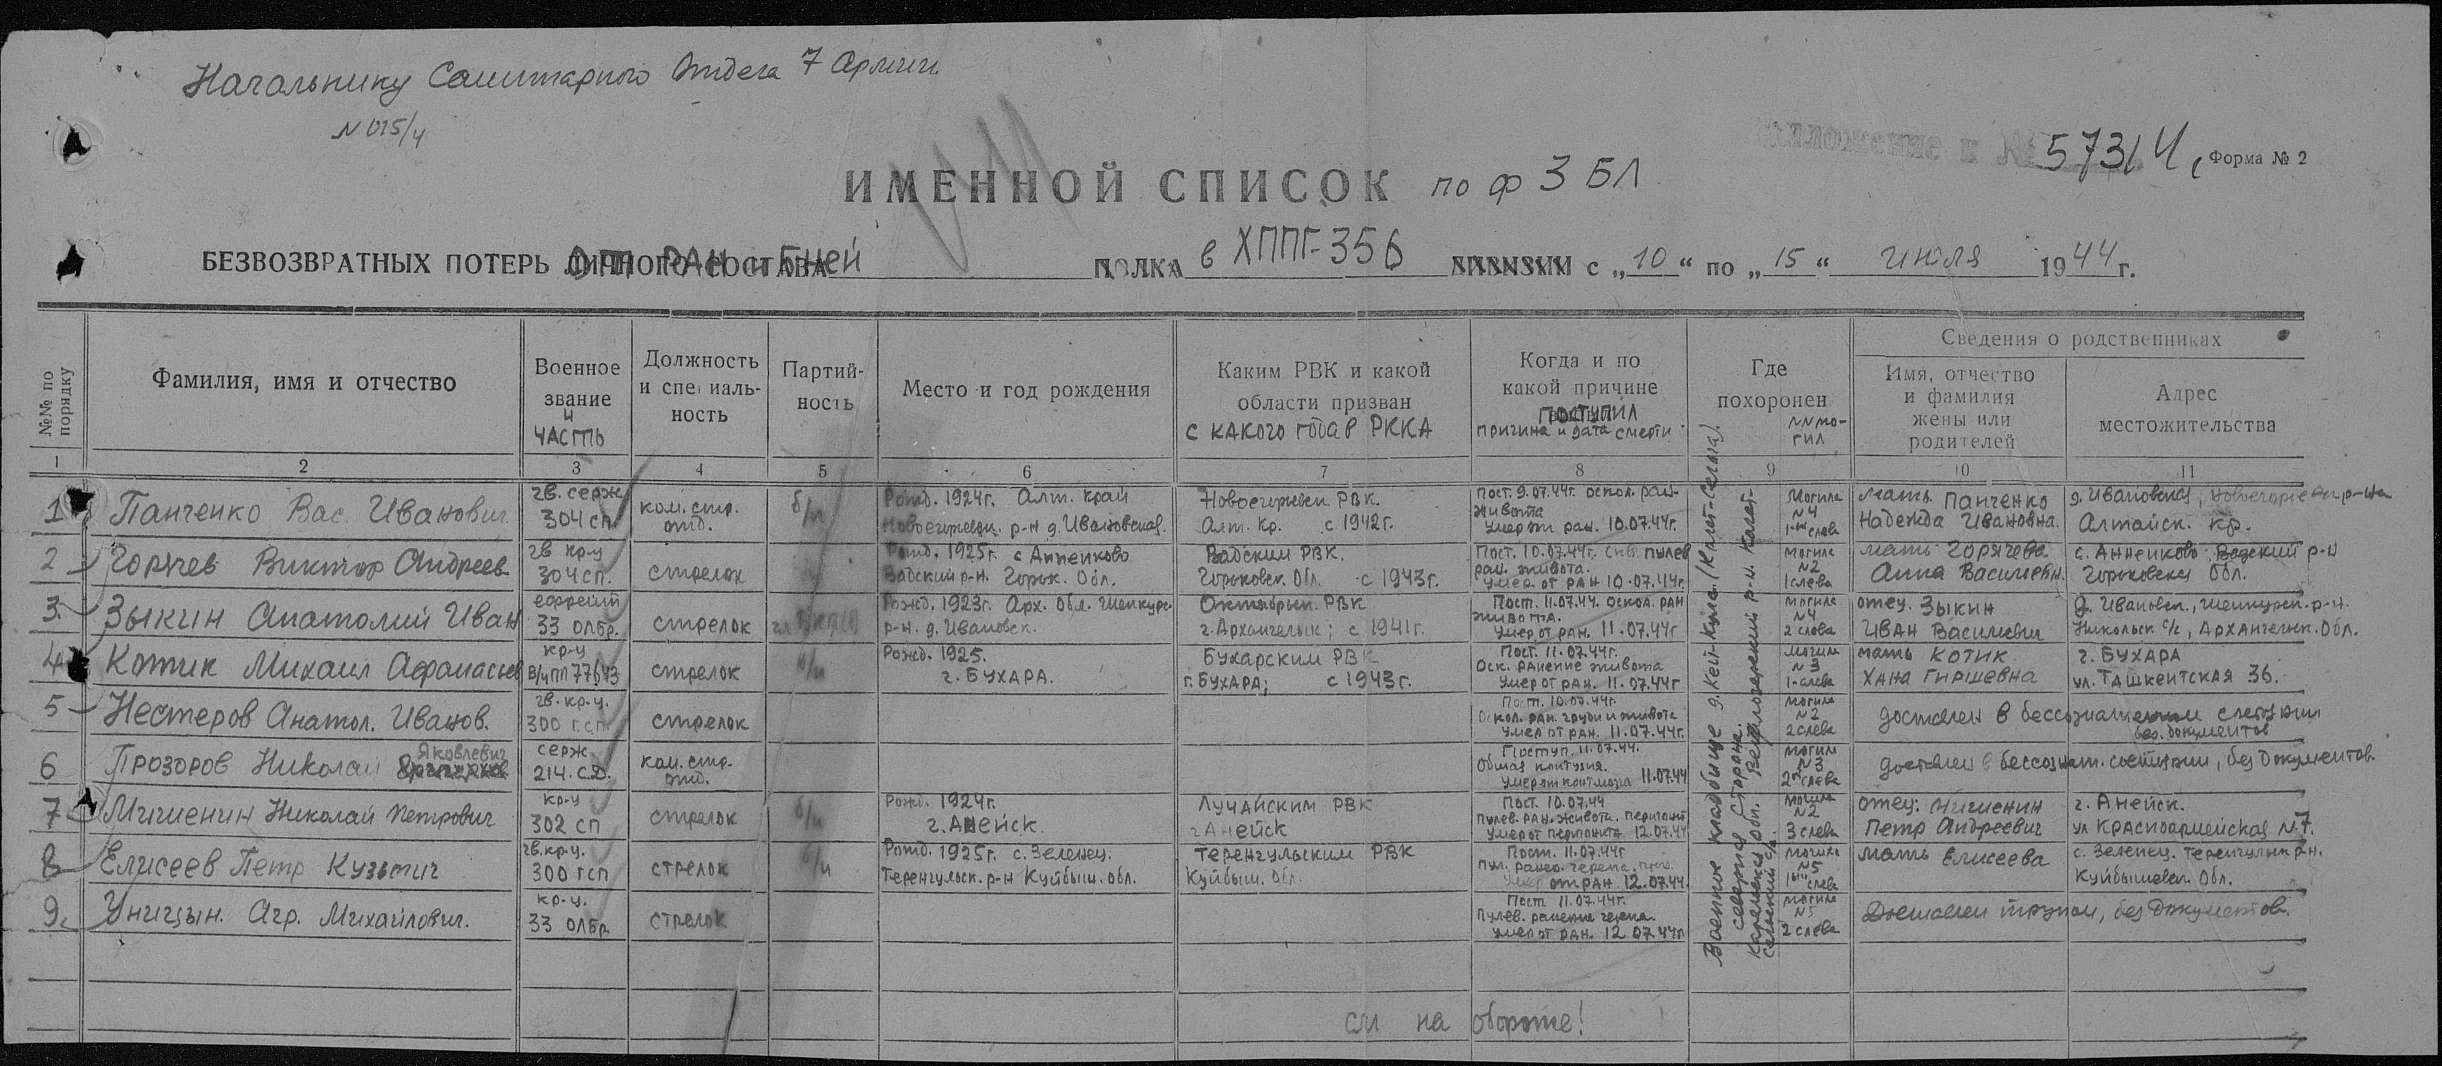 Начальнику Санитарного Отдела 7 Армии
N 015/4
Приложение к № 573/4с
Форма № 2
ИМЕННОЙ СПИСОК по ф 3 БЛ
БЕЗВОЗВРАТНЫХ ПОТЕРЬ от РАН и Б-ней ПОЛКА в ХППГ-356 с „10“ по „15“ июля 1944 г.
№№ по порядку
Фамилия, имя и отчество
Военное звание и часть
Должность и специальность
Партийность
Место и год рождения
Каким РВК и какой области призван с какого года в РККА
Когда и по какой причине поступил причина и дата смерти
Где похоронен NN могил
Сведения о родственниках
Имя, отчество и фамилия жены или родителей
Адрес местожительства
1 2 3 4 5 6 7 8 9 10 11
1 Панченко Вас. Иванович гв. серж 304 сп. ком. стр. отд. б/п Рожд. 1924г. Алт. край р-н д. Ивановская РВК. Алт. кр. с 1942г. Пост. 9.07.44г. оскол. ран. живота умер от ран. 10.07.44г. могила N4 1-ый слева мать Панченко Надежда Ивановна. д. Ивановская, р-на Алтайск. кр.
2 Горячев Виктор Андреев гв кр-ц 304 сп. стрелок Рожд. 1925г. с Анненково Вадский р-н. Горьк. Обл. Вадским РВК. Горьковск. Обл. с 1943г. Пост. 10.07.44г. пулев ран. живота. умер от ран 10.07.44г. могила N2 1 слева мать Горячева Анна Васильевн. с. Анненково Вадский р-н Горьковская Обл.
3. Зыкин Анатолий Иван ефрейт 33 олбр. стрелок Рожд. 1923г. Арх. Обл. Шенкурс. р-н. д. Ивановск. Октябрьск. РВК г. Архангельск; с 1941г. Пост. 11.07.44. оскол. ран живота. умер от ран. 11.07.44г могила N4 2 слева отец. Зыкин Иван Васильевич д. Ивановск., Шенкурск. р-н. Никольск с/с, Архангельск. Обл.
4 Котик Михаил Афанасьев кр-ц в/ч пп 77643 стрелок б/п Рожд. 1925. г. Бухара. Бухарским РВК г. Бухара; с 1943г. Пост. 11.07.44г. Оск. ранение живота умер от ран. 11.07.44г могила N3 1-слева мать Котик Хана Гиршевна г. Бухара ул. Ташкентская 36.
5 Нестеров Анатол. Иванов. гв. кр-ц. 300 г.сп. стрелок Пост. 10.07.44г. Оскол. ран. груди и живота умер от ран. 11.07.44г. могила N2 2 слева доставлен в бессознательном состоянии без. документов
6 Прозоров Николай Яковлевич серж 214. С.Д. ком. стр. отд. Поступ. 11.07.44. Общая контузия. умер от контузии 11.07.44 могила N3 2ой слева доставлен в бессознат. состоянии, без документов.
7 Мишенин Николай Петрович кр-ц 302 сп стрелок б/п Рожд. 1924г. г. Анейск. Лучанским РВК г Анейск Пост. 10.07.44 Пулев. ран. живота. перитонит умер от перитонита 12.07.44 могила N2 3 слева отец: Мишенин Петр Андреевич г. Анейск. ул Красноармейская N.7.
8 Елисеев Петр Кузьмич гв. кр-ц. 300 гсп стрелок б/п Рожд. 1925г. с. Зеленец. Теренгульск. р-н Куйбыш. обл. Теренгульским РВК Куйбыш. обл. Пост. 11.07.44г Пул. ранен. черепа. умер от ран. 12.07.44. могила N5 1ый слева мать Елисеева с. Зеленец. Теренгульск р-н. Куйбышевск. Обл.
9. Уницын. Агр. Михайлович. кр-ц. 33 олбр стрелок Пост 11.07.44г. Пулев. ранение черепа. умер от ран. 12 07.44г могила N5 2 слева Доставлен трупом, без документов.
Военное кладбище д. северная сторона.
см на обороте!